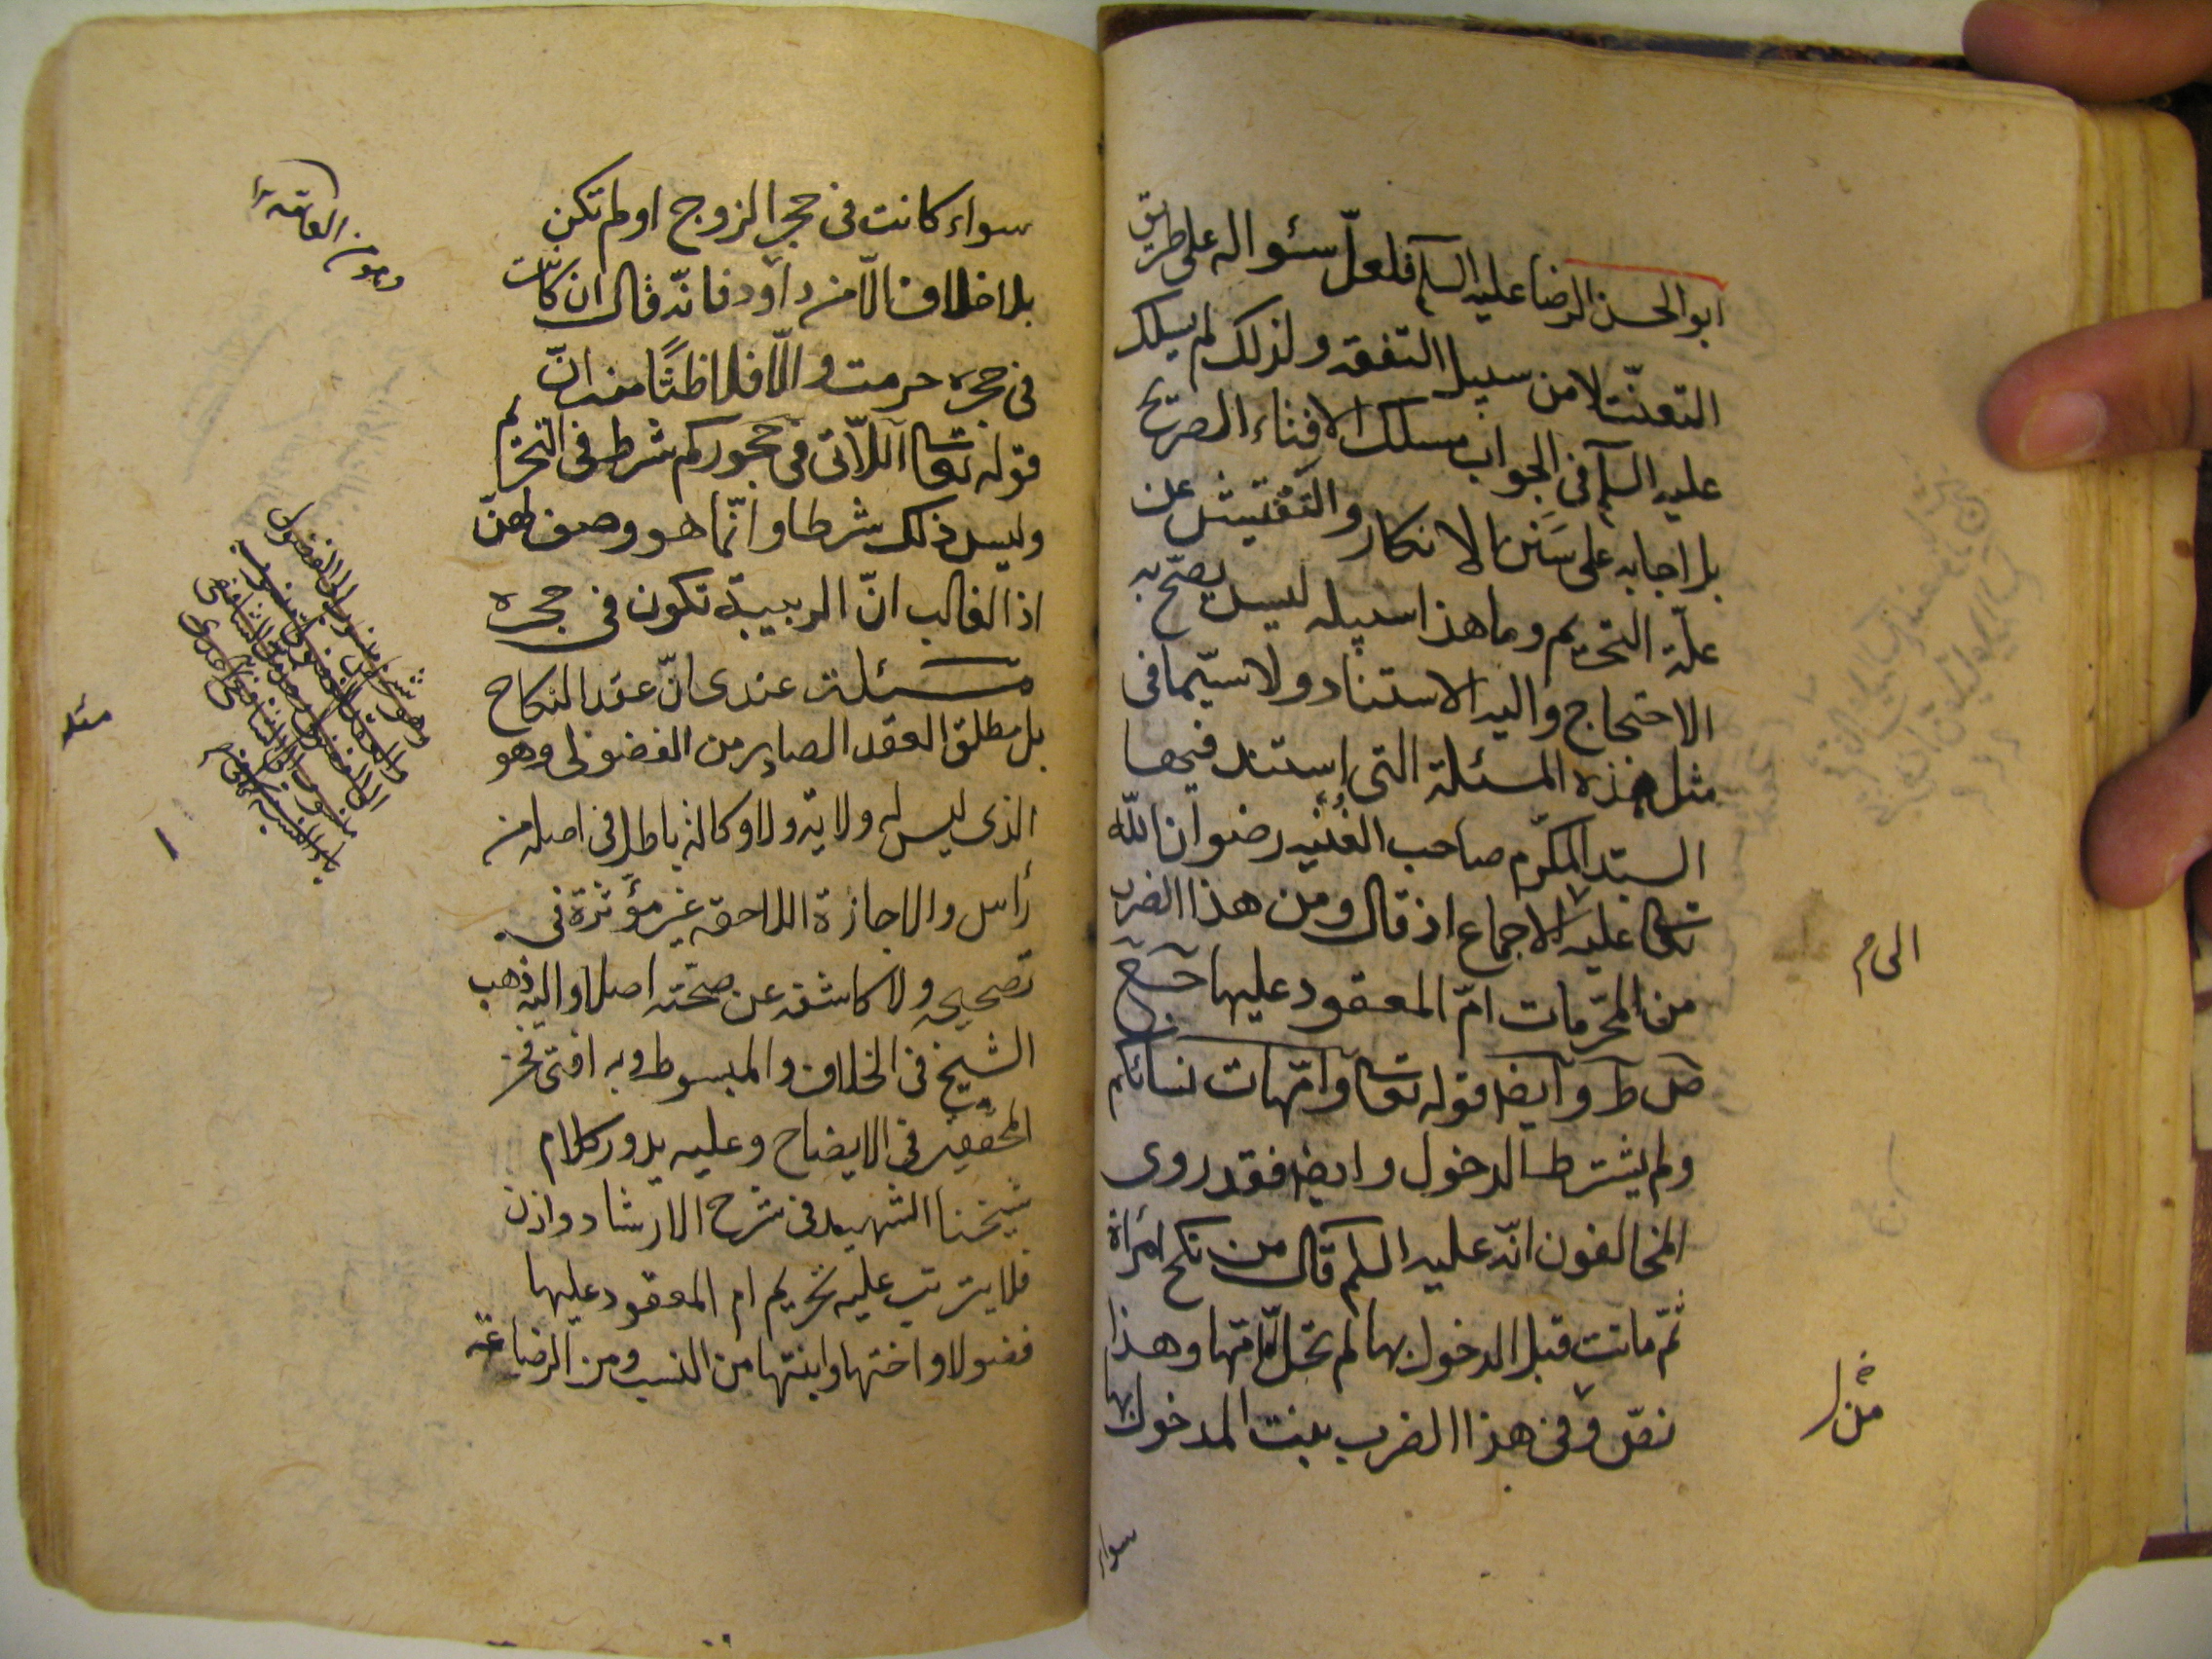 ابو الحسن الرضا عليه السلم فلعلّ سئواله على طريق
التعنّت لا من سبيل التفقه ولذلك لم يسلك
عليه السلم فى الجواب مسلك الافتاء الصريح
بل اجابه على سَنن الانكار والتفتيش عن
علّة التحريم وما هذا سبيله ليس يصحّ به
الاحتجاج واليه الاستناد ولا سيّما فى
مثل هذه المسئلة التى استند فيها
السيّد المكرّم صاحب الغُنْيه رضوان اللّه
تعالى عليه الاجماع اذ قال ومن هذا الضرب
الى م
من المحرّمات امّ المعقود عليها
وايضا قوله تعالى وامّهات نسائكم
ولم يشترط الدخول وايضا فقد روى
المخالفون انّه عليه السلم قال من نكح امرأة
ثمّ ماتت قبل الدخول بها لم تحلّ له امّها وهذا
نصّ وفى هذا الضرب بنت المدخول بها
سواء
سواء كانت فى حجر الزوج او لم تكن
بلا خلاف الّا من داود فانّه قال ان كانت
فى حجره حرمت والّا فلا ظنّا منه انّ
قوله تعالى اللّاتى فى حجوركم شرط فى التحريم
وليس ذلك شرطا وانّما هو وصف لهنّ
اذ الغالب انّ الربيبة تكون فى حجره
مسئلة عندى انّ عقد النكاح
بل مطلق العقد الصادر من الفضولى وهو
الذى ليس له ولاية ولا وكالة باطل فى اصله من
رأس والاجازة اللاحقه غير مؤثرة فى
تصحيحه ولا كاشفه عن صحّته اصلا واليه ذهب
الشيخ فى الخلاف والمبسوط وبه افتى فخر
المحققين فى الايضاح وعليه يدور كلام
شيخنا الشهيد فى شرح الارشاد واذن
فلا يترتب عليه تحريم ام المعقود عليها
فضولا واختها وابنتها من النسب ومن الرضاعة
وهو من العامّة